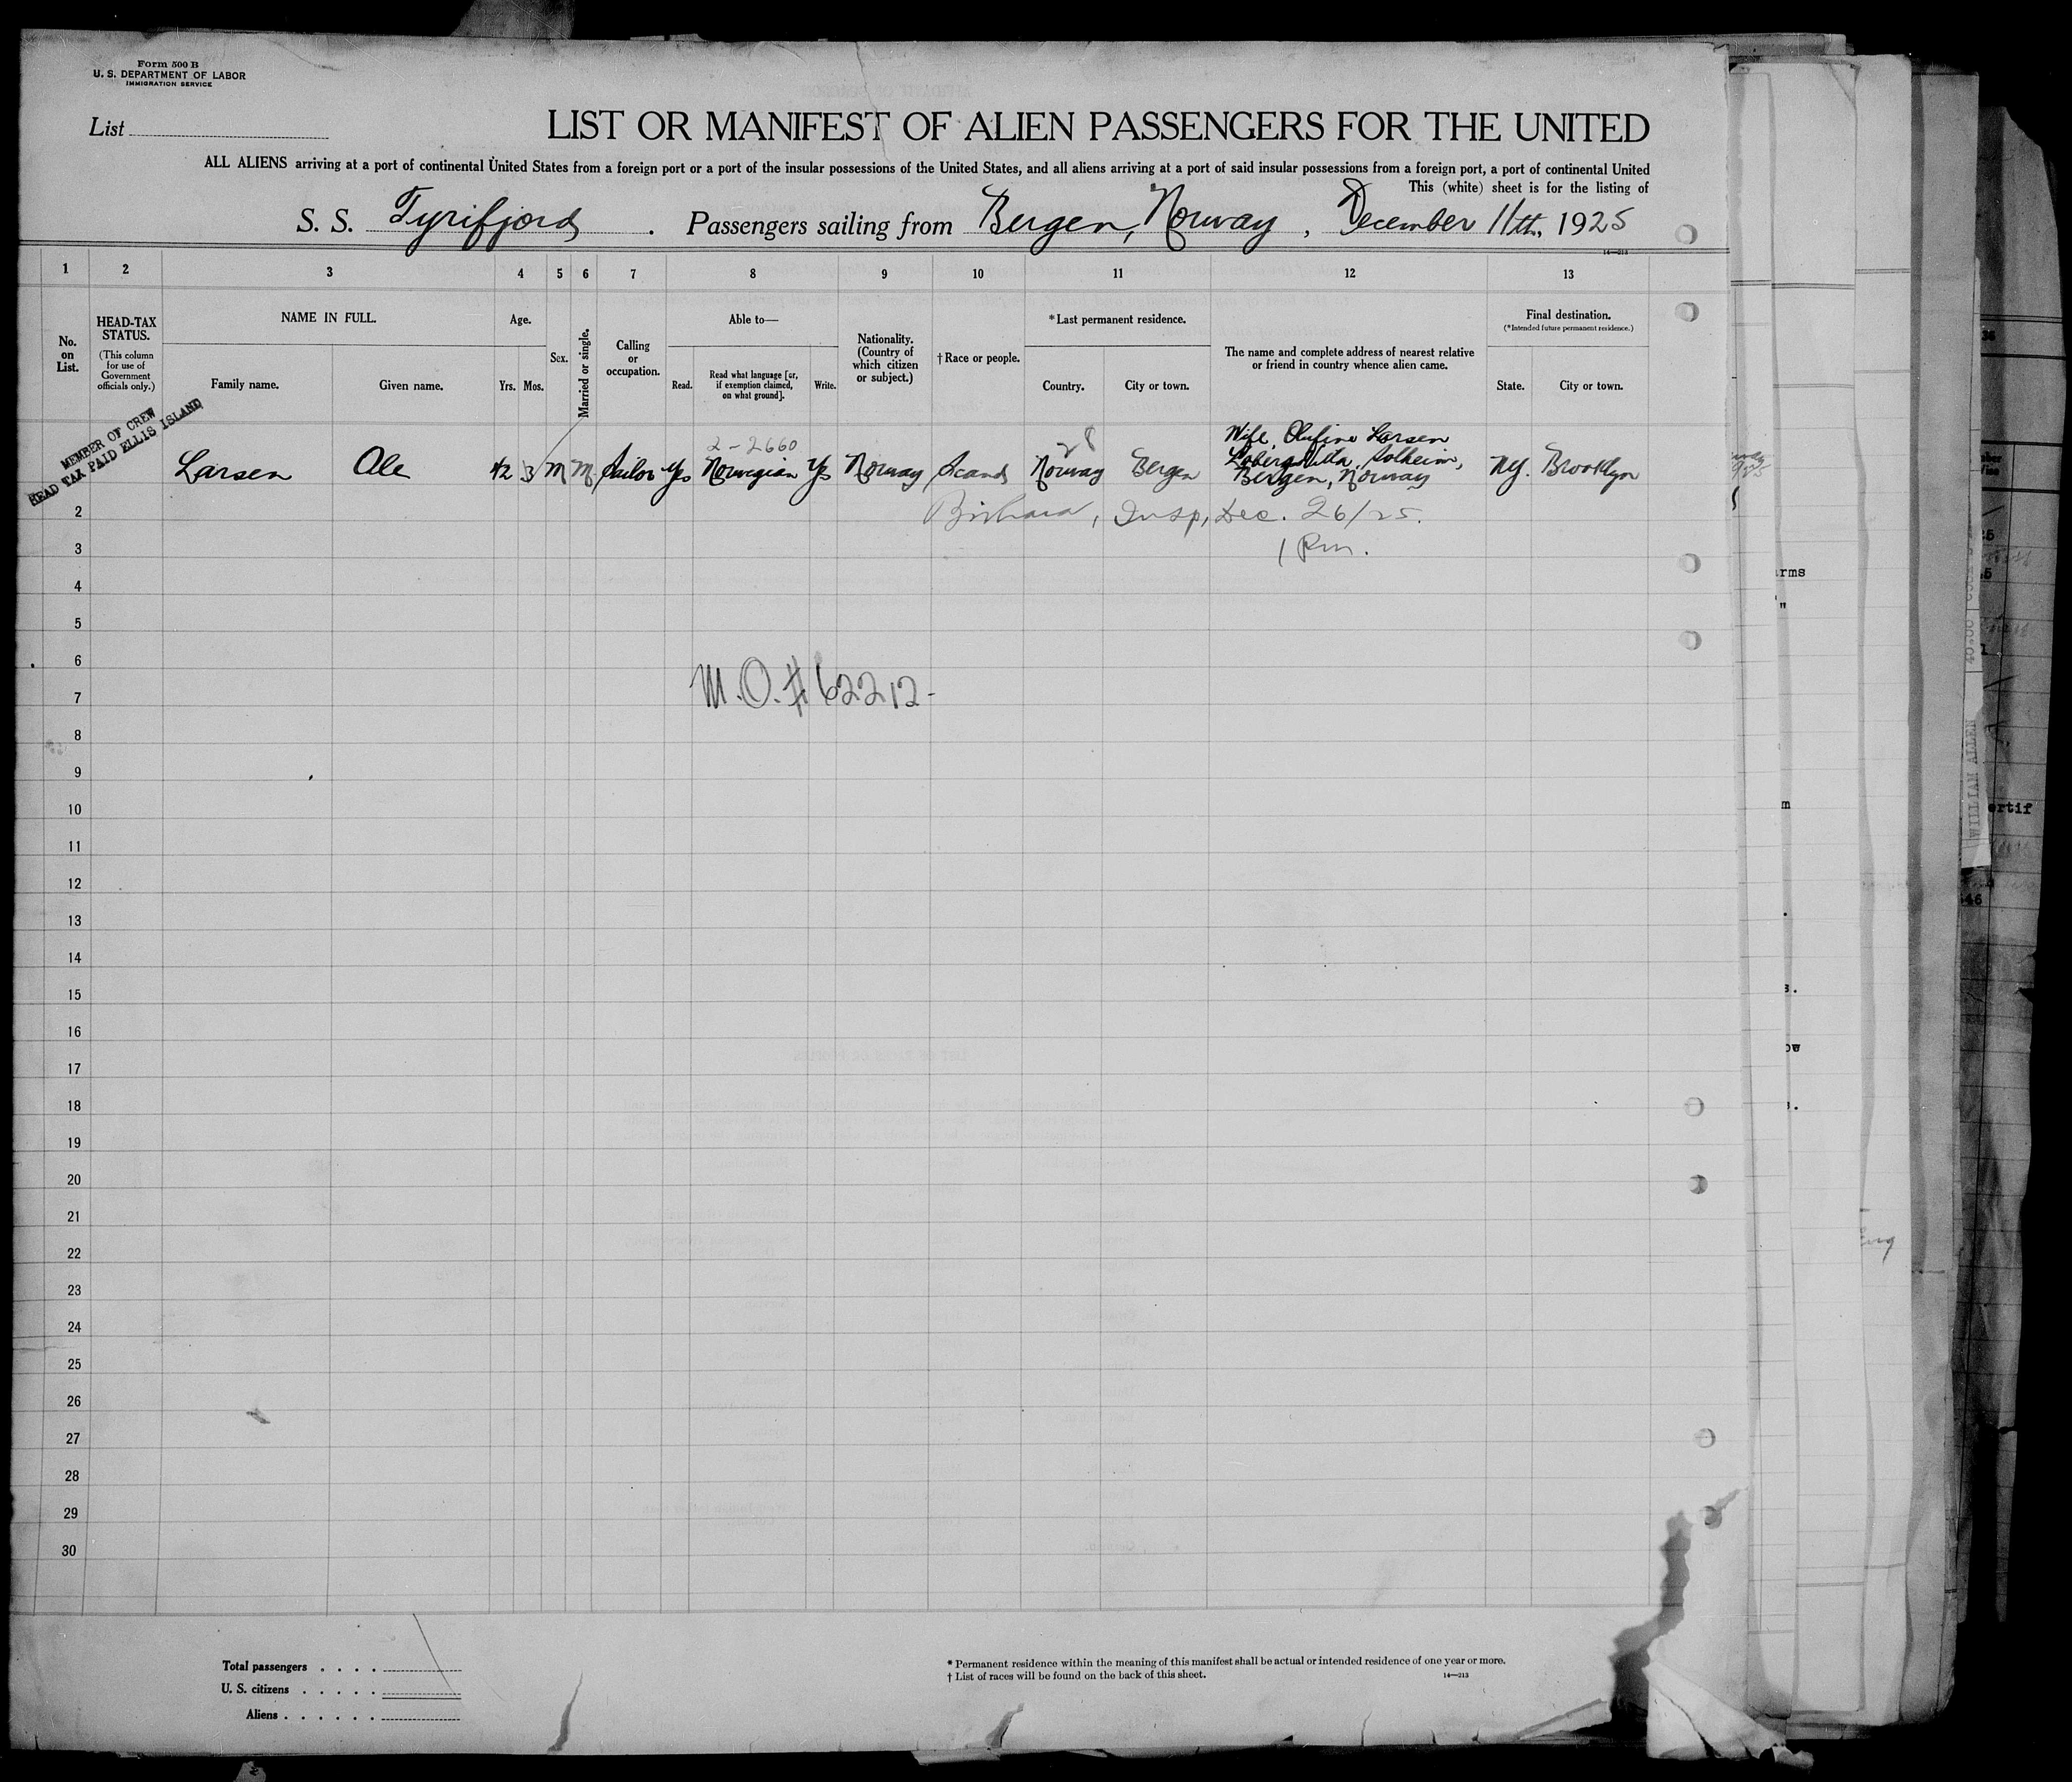 Form 500 B
U. S. DEPARTMENT OF LABOR
IMMIGRATION SERVICE
List
LIST OR MANIFEST OF ALIEN PASSENGERS FOR THE UNITED
ALL ALIENS arriving at a port of continental United States from a foreign port or a port of the insular possessions of the United States, and all aliens arriving at a port of said insular possessions from a foreign port, a port of continental United
This (white) sheet is for the listing of
S. S. Tyrifjord . Passengers sailing from Bergen, Norway , December 11th, 1925
14—213
1 2 3 4 5 6 7 8 9 10 11 12 13
No. on List.
HEAD-TAX STATUS.
(This column for use of Government officials only.)
NAME IN FULL.
Family name. Given name.
Age.
Yrs. Mos.
Sex.
Married or single.
Calling or occupation.
Able to—
Read. Read what language [or, if exemption claimed, on what ground]. Write.
Nationality. (Country of which citizen or subject.)
†Race or people.
*Last permanent residence.
Country. City or town.
The name and complete address of nearest relative or friend in country whence alien came.
Final destination.
(*Intended future permanent residence.)
State. City or town.
MEMBER OF CREW
HEAD TAX PAID ELLIS ISLAND
2-2660
28
Wife, Olufine Larsen
Larsen Ole 42 3 M M Sailor Yes Norwegian Yes Norway Scand Norway Bergen Solheim, NY. Brooklyn
Bergen, Norway
2 Insp, Dec. 26/25.
3 1 Pm.
4
5
6
M.O. # 62212-
7
8
9
10
11
12
13
14
15
16
17
18
19
20
21
22
23
24
25
26
27
28
29
30
Total passengers . . . .
U. S. citizens . . . . .
Aliens . . . . . .
* Permanent residence within the meaning of this manifest shall be actual or intended residence of one year or more.
† List of races will be found on the back of this sheet.
14—213